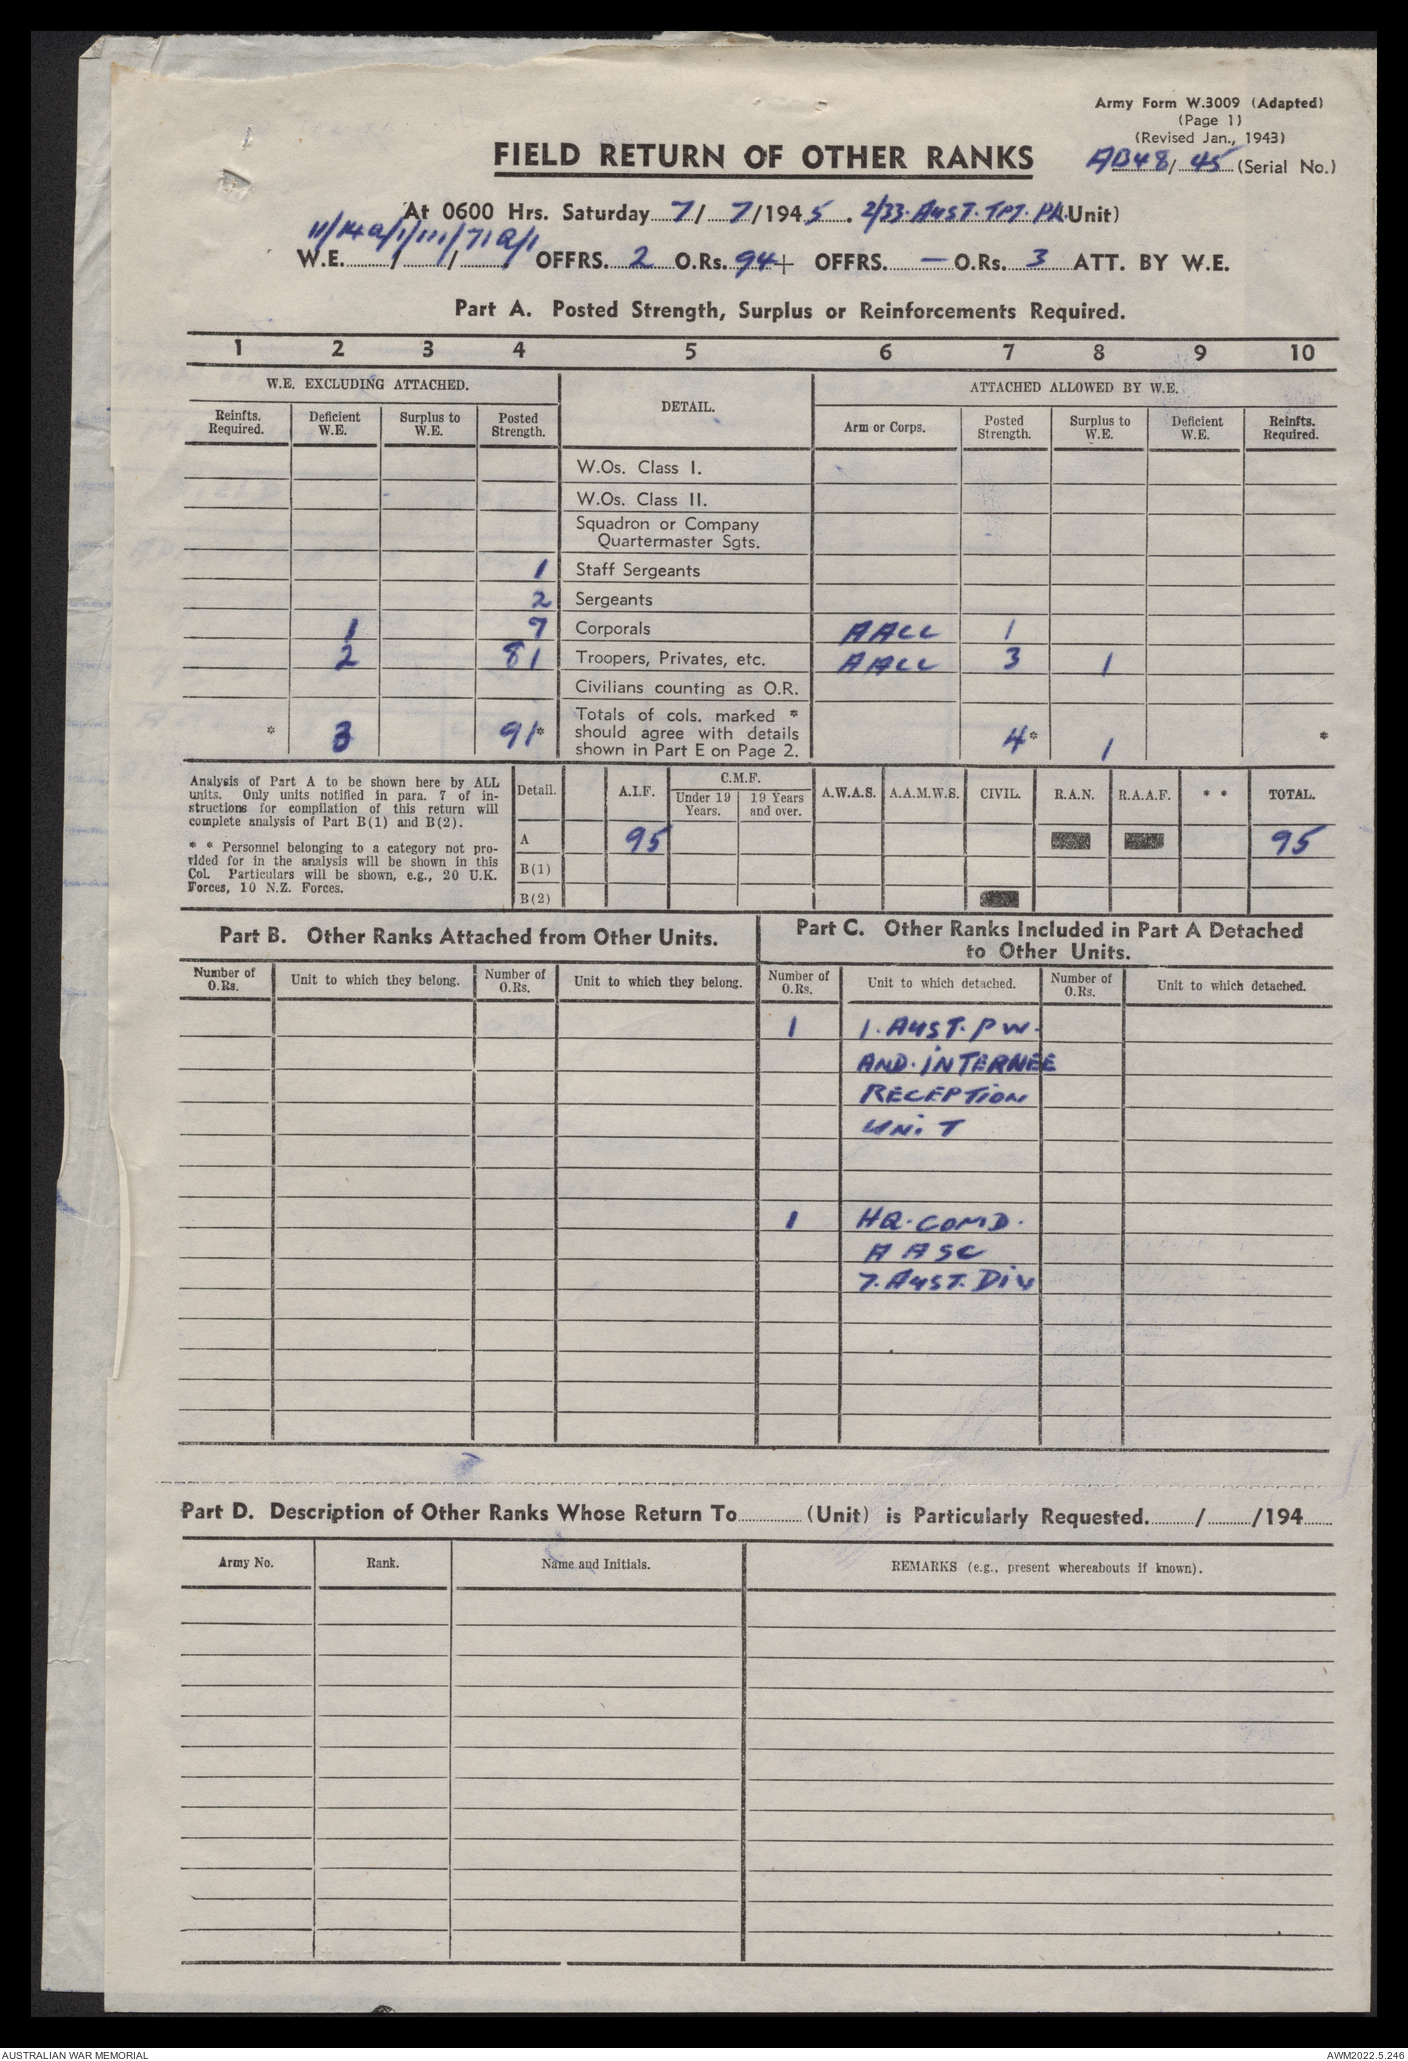 Army Form W.3009 (Adapted)
(Page 1)
(Revised Jan., 1943)
AB48/45 (Serial No.)
FIELD RETURN OF OTHER RANKS
At 0600 Hrs. Saturday 7/7/1945. 2/33. AUST. TPT. PL. Unit)
11/14Q/1/111/71Q/1
W.E. / / OFFRS. 2 O.Rs. 94+ OFFRS. — O.Rs. 3 ATT. BY W.E.
Part A. Posted Strength, Surplus or Reinforcements Required.
1 2 3 4 5 6 7 8 9 10
W.E. EXCLUDING ATTACHED. DETAIL. ATTACHED ALLOWED BY W.E.
Reinfts. Required. Deficient W.E. Surplus to W.E. Posted Strength. Arm or Corps. Posted Strength. Surplus to W.E. Deficient W.E. Reinfts. Required.
W.Os. Class I.
W.Os. Class II.
Squadron or Company
Quartermaster Sgts.
1 Staff Sergeants
2 Sergeants
1 7 Corporals AACC 1
2 81 Troopers, Privates, etc. AACC 3 1
Civilians counting as O.R.
Totals of cols. marked *
should agree with details
shown in Part E on Page 2.
* 3 91* 4* 1 *
Analysis of Part A to be shown here by ALL
units. Only units notified in para. 7 of in-
structions for compilation of this return will
complete analysis of Part B(1) and B(2).
* * Personnel belonging to a category not pro-
vided for in the analysis will be shown in this
Col. Particulars will be shown, e.g., 20 U.K.
Forces, 10 N.Z. Forces.
Detail. A.I.F. C.M.F. A.W.A.S. A.A.M.W.S. CIVIL. R.A.N. R.A.A.F. * * TOTAL.
Under 19 Years. 19 Years and over.
A 95 95
B(1)
B(2)
Part B. Other Ranks Attached from Other Units.
Part C. Other Ranks Included in Part A Detached
to Other Units.
Number of O.Rs. Unit to which they belong. Number of O.Rs. Unit to which they belong. Number of O.Rs. Unit to which detached. Number of O.Rs. Unit to which detached.
1 1. AUST. P W.
AND. INTERNEE
RECEPTION
UNIT
1 HQ. COMD.
AASC
7. AUST. DIV
Part D. Description of Other Ranks Whose Return To (Unit) is Particularly Requested. / /194
Army No. Rank. Name and Initials. REMARKS (e.g., present whereabouts if known).
AUSTRALIAN WAR MEMORIAL AWM2022.5.246